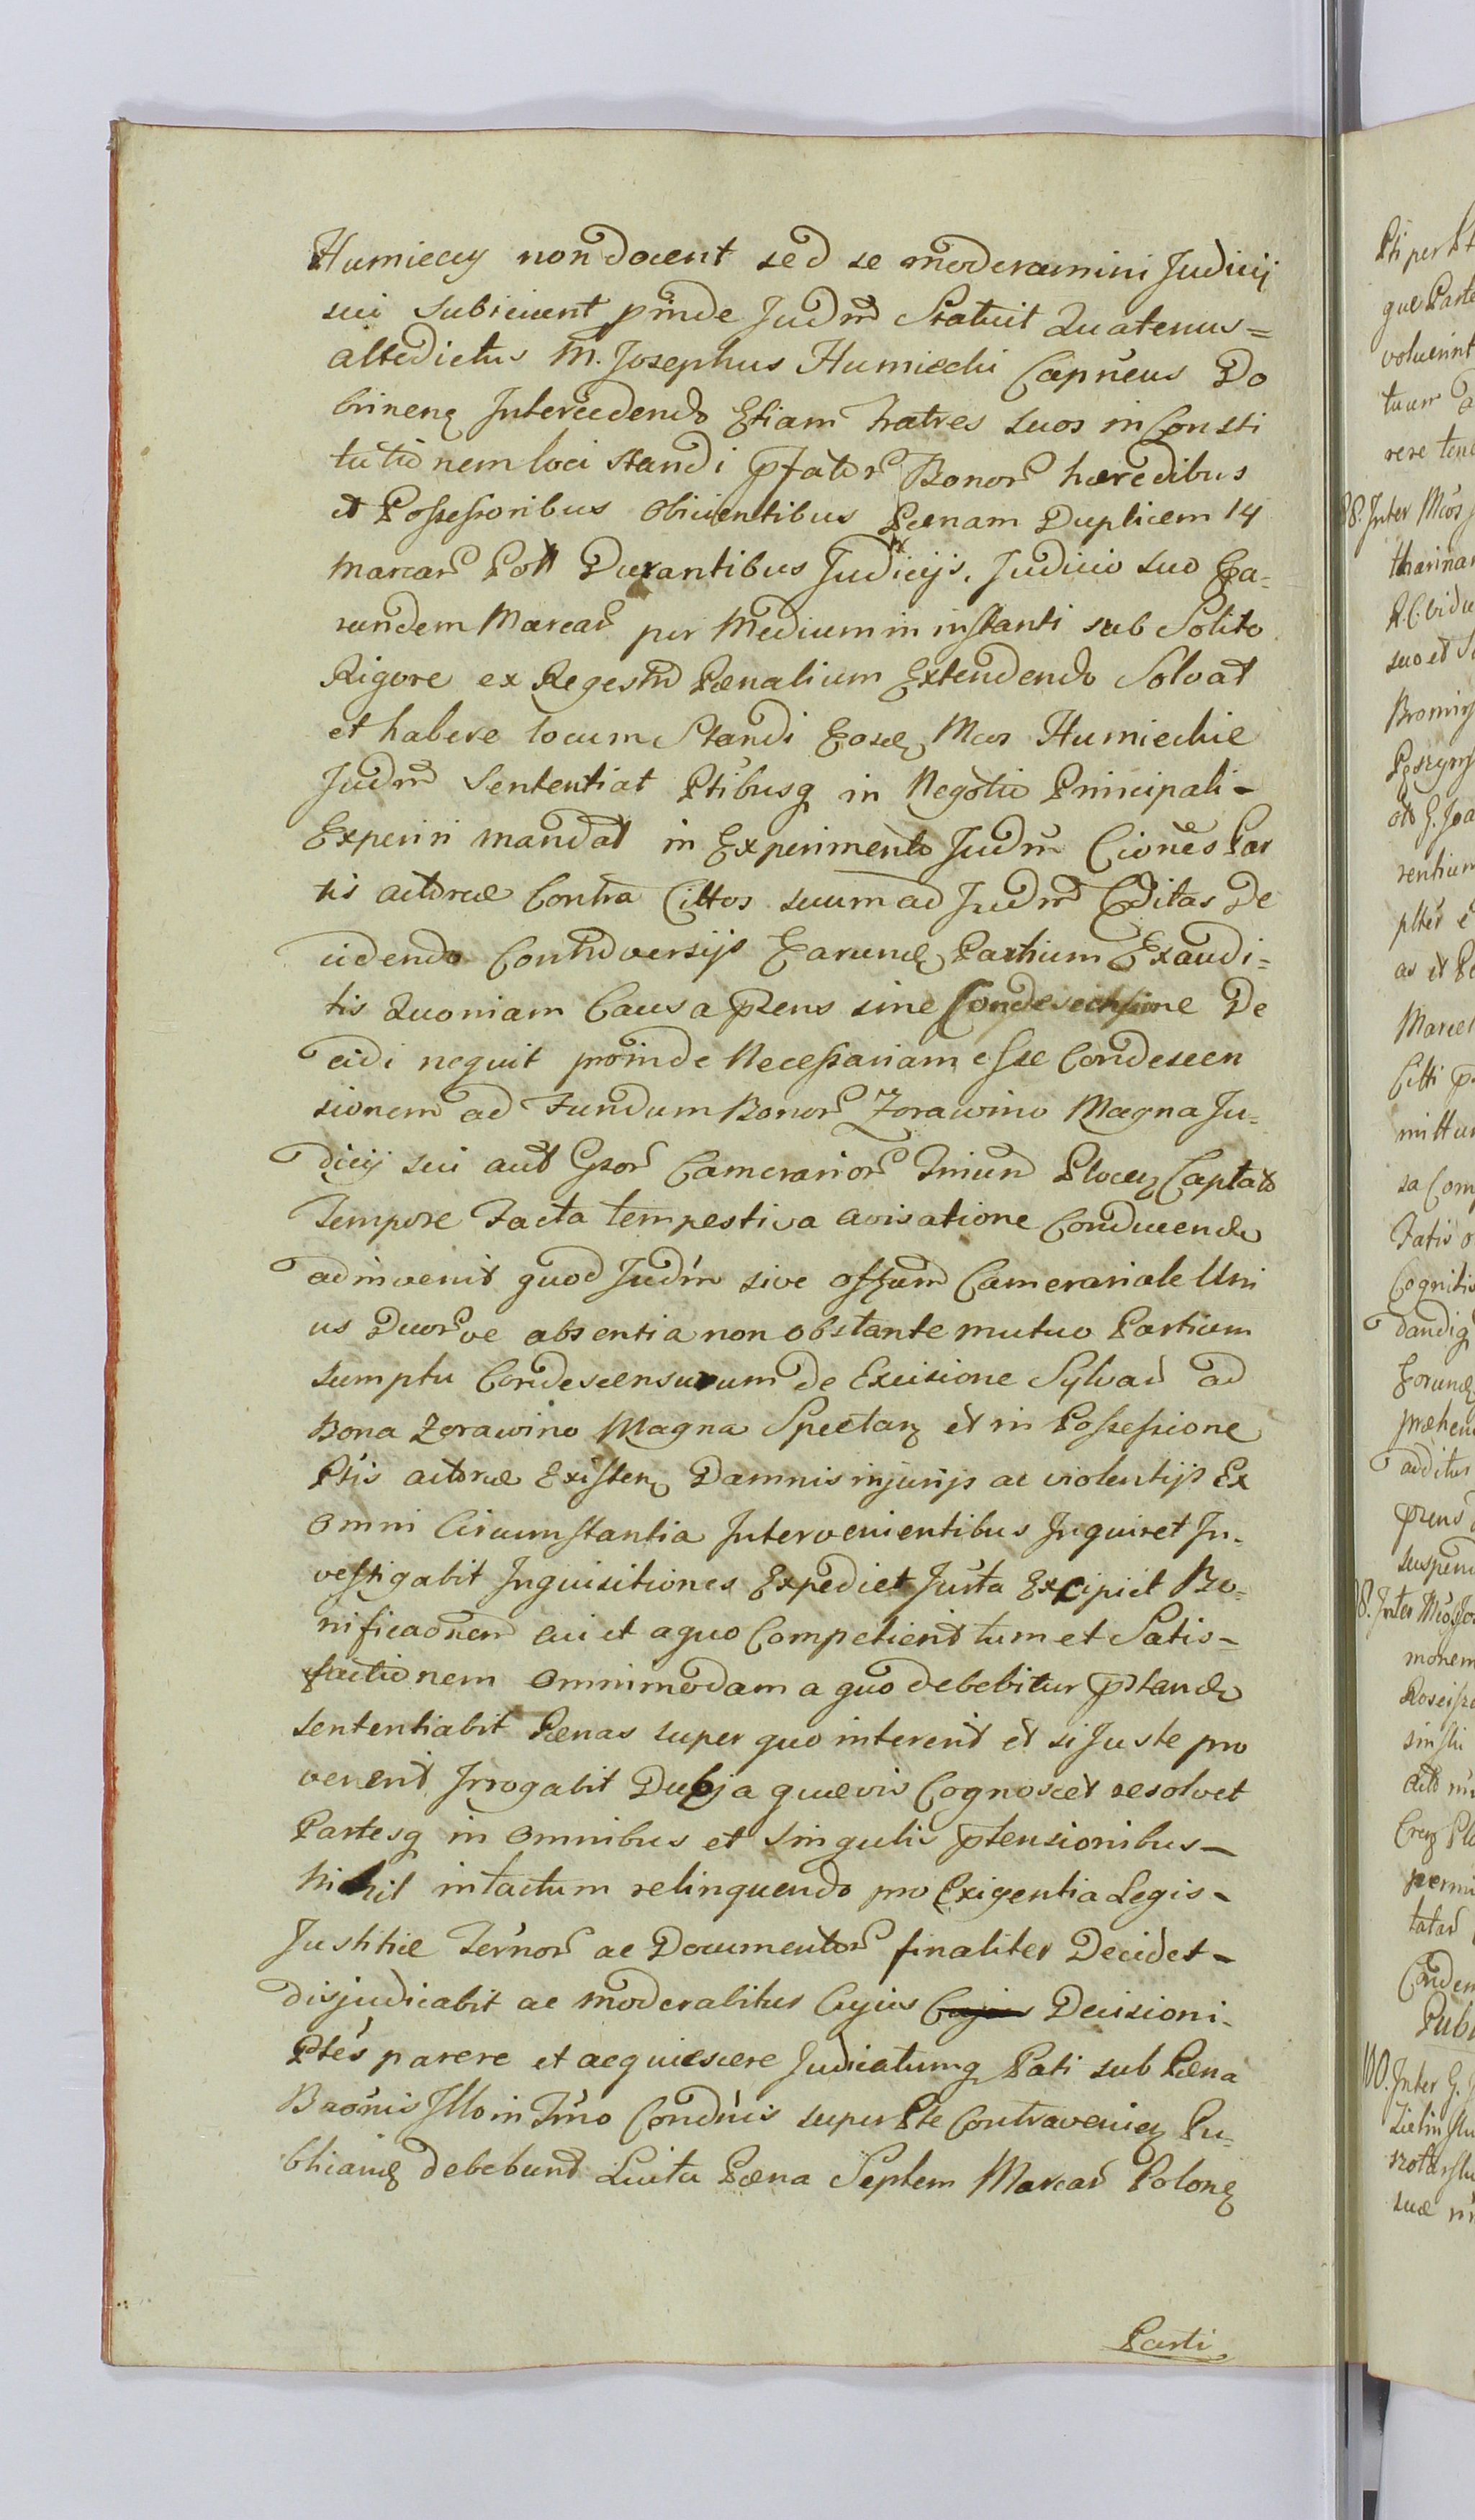 Humieccy non docent sed se moderamini Judicij
sui subiciunt pinde Judm Statuit Quatenus=
altedictus M. Josephus Humiecki Capneus Do
brinen Intercedendo Etiam fratres suos in Consti
tutionem loci standi pfator Bonor hæredibus
et Possessoribus Obicientibus Pænam Duplicem 14
Marcar Poll Durantibus Judicijs, Judicio suo Ea=
rundem Marcar per Medium in instanti sub Solito
Rigore ex Regestro Pænalium Extendendo Solvat
et habere locum Standi Eosd Mcos Humieckie
Judm Sententiat Ptibusq in Negotio Principali-
Experiri mandat in Experimento Judm Ciones Par
tis actoræ Contra Cittos suum ad Judm Editas De
cidendo Controversijs Earund Partium Exaudi=
tis Quoniam Causa pzens sine Condescensione De
cidi nequit proinde Necessariam esse Condescen
sionem ad Fundum Bonor Zorawino Magna Ju=
dicij sui aut Gsor Camerarior Plocen Captato
Tempore Facta tempestiva avisatione Conducendo
adinvenit quod Judm sive Offum Camerariale Uni
us Duorve absentia non obstante mutuo Partium
sumptu Condescensurum de Excisione Sylvar ad
Bona Zorawino Magna Spectan et in Possessione
Ptis actoræ Existen Damnis injurijs ac violentijs Ex
Omni Circumstantia Intervenientibus Inquiret In-
vestigabit Inquisitiones Expediet Justa Excipiet Bo=
nificaonem cui et a quo Competierit tum et Satis-
factionem Omnimodam a quo debebitur pstando
sententiabit Pænas super quo intererit et si Juste pro
venerit Irrogabit Dubja quævis Cognoscet resolvet
Partesq in Omnibus et singulis ptensionibus-
Nihil intactum relinquendo pro Exigentia Legis-
Justitiæ Ternor ac Documentor finaliter Decidet-
disjudicabit ac moderabitur Cujus Cujus Decisioni-
Ptes parere et acquiescere Judicatumq Pati sub Pæna
Baonis Illo in Trno Condnis super Pte Contravenien Pu-
blicand debebunt Luita Pæna Septem Marcar Polon
Parti
Pti per
que Parte
voluerint
tuum
rere
88. Inter Mcos
tharinam
suo et
ad G. Joa
rentium
plter
as et
Marcel
Citti
mittun
sa Com
Fatis
Cognitio
dandiq
Eorund
præhen
additur
pzens
suspend
monem
tatar
Conden
Publ
100. Inter G.
suæ